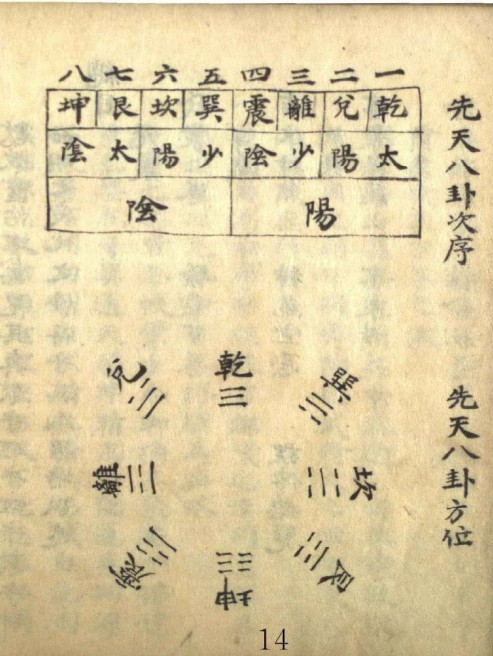 先天八卦次序
一二三四五六七八
乾兌離震巽坎艮坤
太陽少陰少陽太陰
陽陰
先天八卦方位
乾
巽
坎
艮
坤
震
離
兌
14